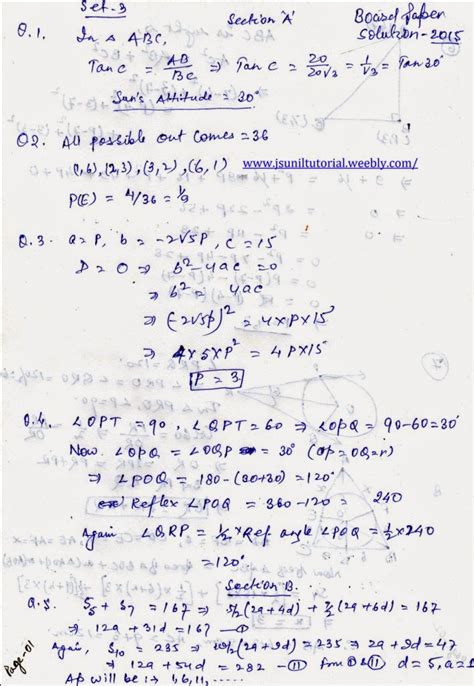 Set-3
Section 'A'
Board Paper
Solution-2015
Q.1. In Δ ABC,
Tan C = AB/BC ⇒ Tan C = 20/20√3 = 1/√3 = Tan 30°
Sun's Altitude = 30°
Q2. All possible out comes = 36
(1,6), (2,3), (3,2), (6,1)
www.jsuniltutorial.weebly.com/
P(E) = 4/36 = 1/9
Q.3. a = P, b = -2√5P, c = 15
D = 0 ⇒ b² - 4ac = 0
⇒ b² = 4ac
⇒ (-2√5P)² = 4×P×15
⇒ 4×5×P² = 4P×15
P = 3
Q.4. ∠OPT = 90, ∠QPT = 60 ⇒ ∠OPQ = 90-60 = 30°
Now ∠OPQ = ∠OQP = 30° (OP = OQ = r)
⇒ ∠POQ = 180 - (30+30) = 120°
Reflex ∠POQ = 360 - 120 = 240
Again ∠QRP = ½ × Ref angle ∠POQ = ½ × 240
= 120°
Section B.
Q.5. S5 + S7 = 167 ⇒ 5/2(2a+4d) + 7/2(2a+6d) = 167
⇒ 12a + 31d = 167 - I
Again, S10 = 235 ⇒ 10/2(2a+9d) = 235 ⇒ 2a + 9d = 47
⇒ 12a + 54d = 282 - II from I & II d = 5, a = 1
AP will be :→ 1, 6, 11, -----
Page-01